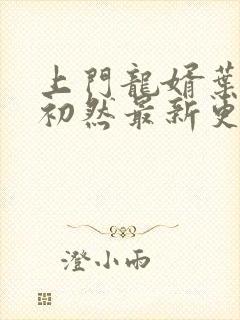 上門龍婿葉
初然最新更
澄小雨